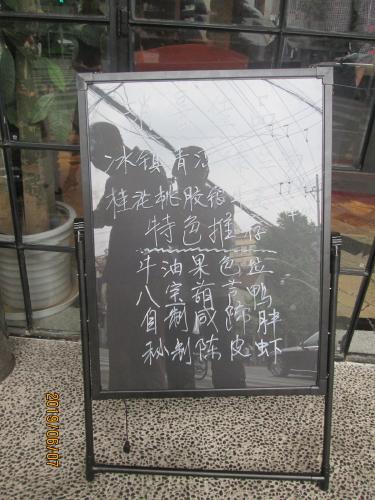 冰镇
桂花桃胶银
特色推荐
牛油果色拉
八宝葫芦鸭
自制咸蹄胖
秘制陈皮虾
2019/06/07